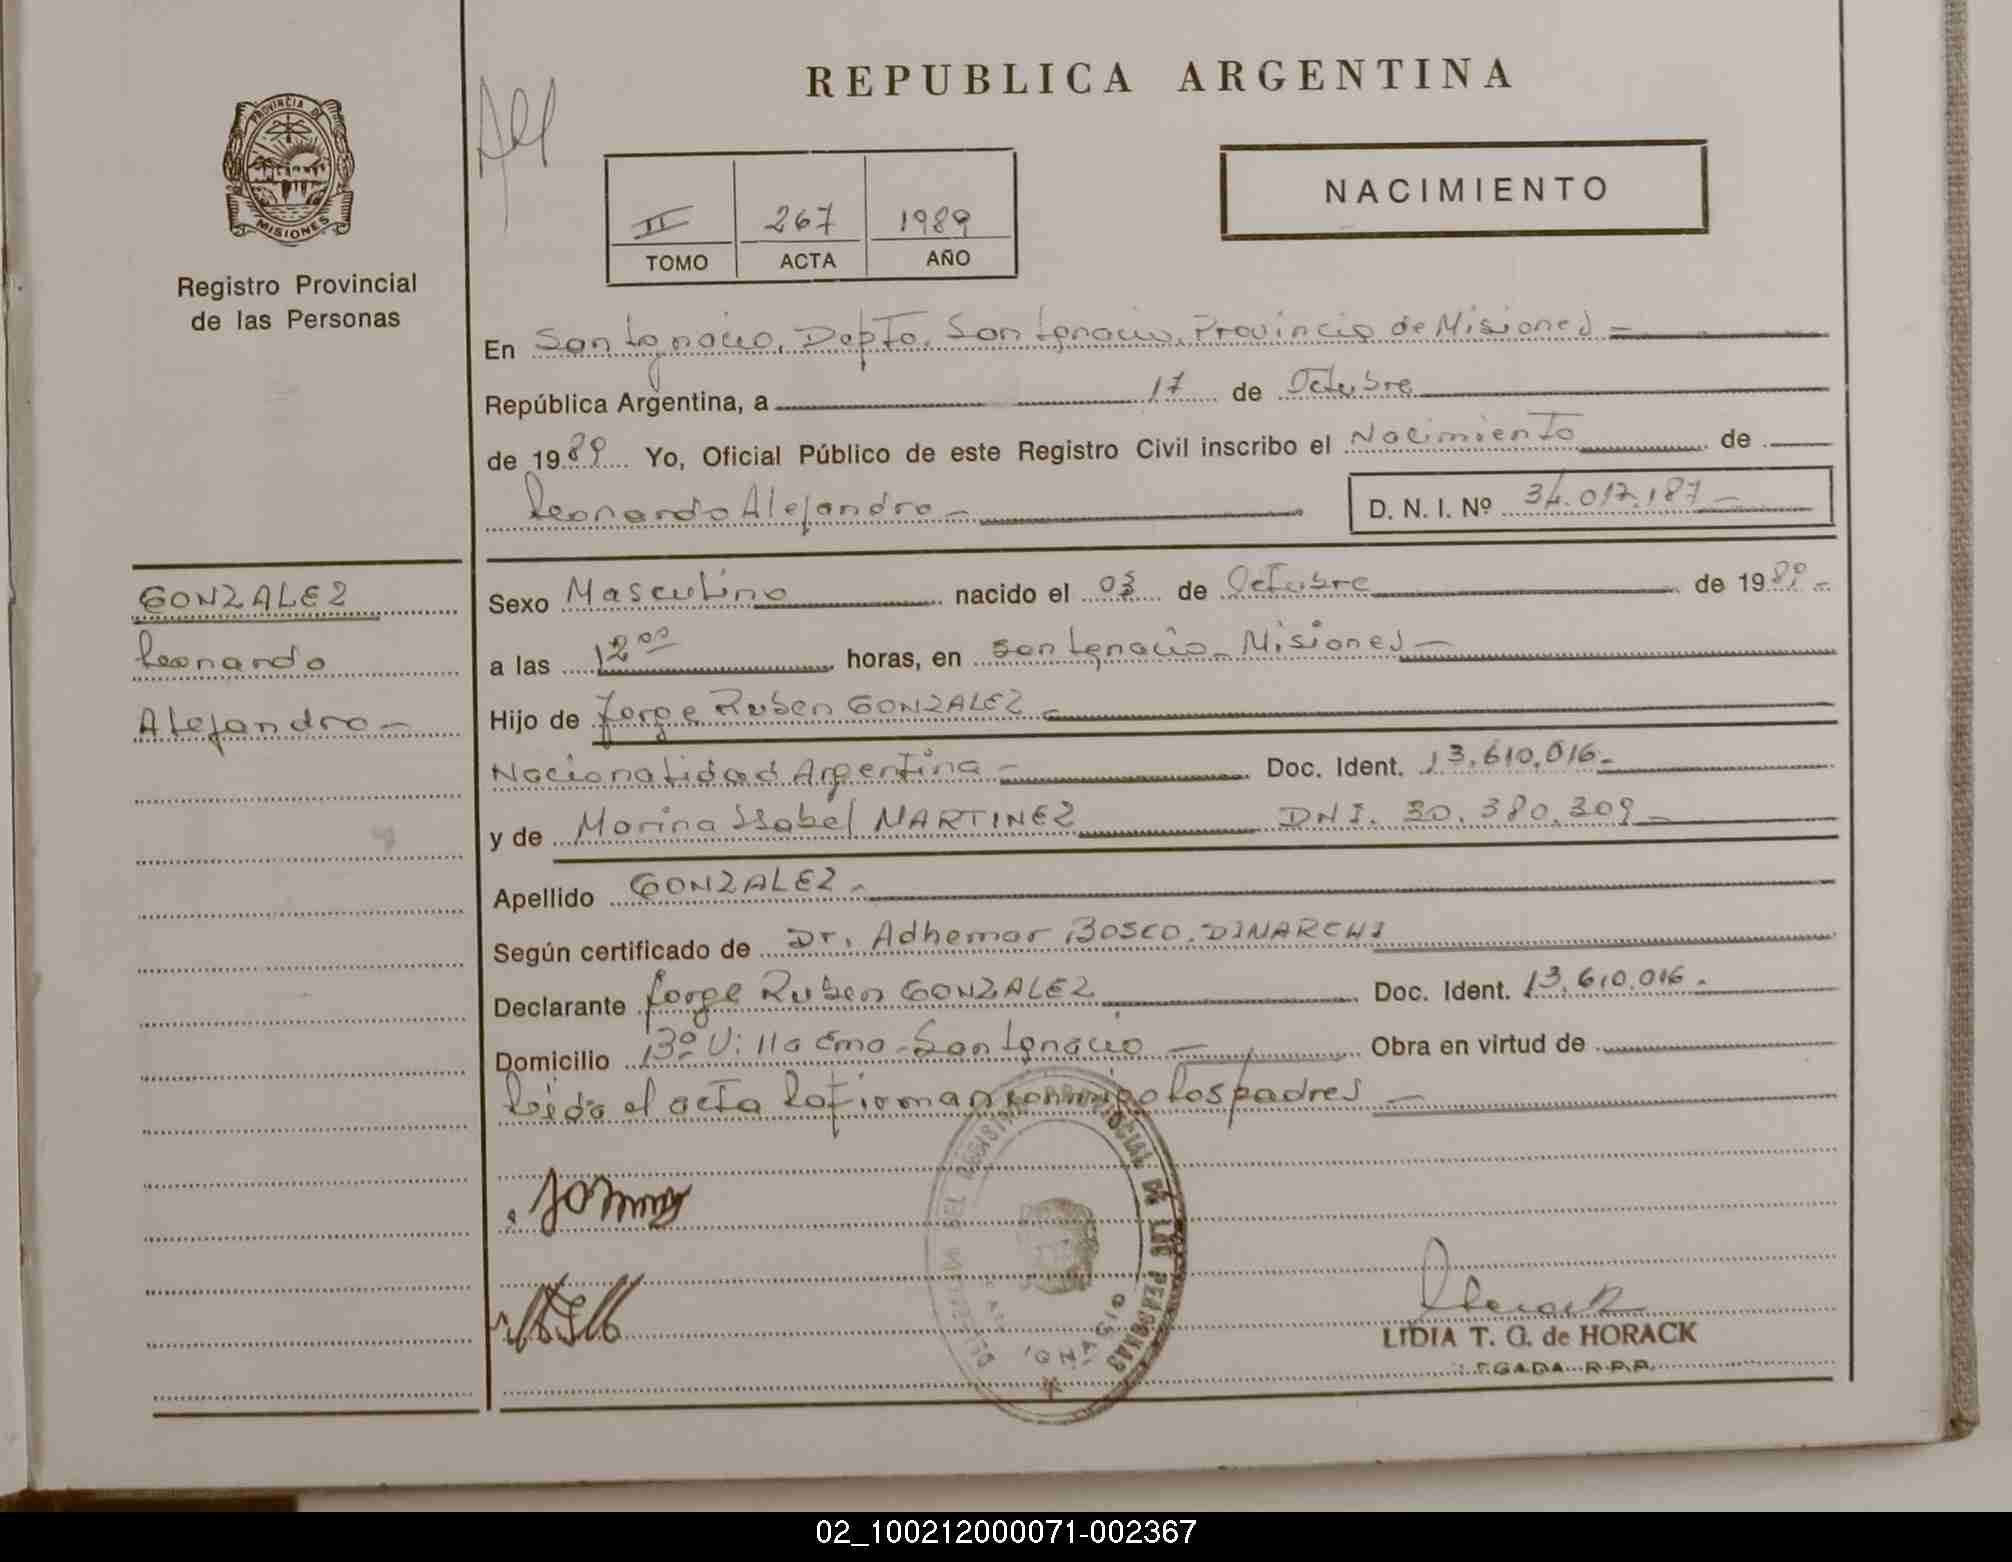 REPUBLICA ARGENTINA
PROVINCIA DE
MISIONES
Registro Provincial
de las Personas
II 267 1989
TOMO ACTA AÑO
NACIMIENTO
En San Ignacio, Depto. San Ignacio, Provincia de Misiones -
República Argentina, a 17 de Octubre
de 1989 Yo, Oficial Público de este Registro Civil inscribo el Nacimiento de
Leonardo Alejandro - D. N. I. Nº 34.017.187 -
GONZALEZ
Leonardo
Alejandro -
Sexo Masculino nacido el 03 de Octubre de 1989 -
a las 12 00 horas, en San Ignacio - Misiones -
Hijo de Jorge Ruben GONZALEZ -
Nacionalidad Argentina - Doc. Ident. 13.610.016 -
y de Marina Isabel MARTINEZ DNI. 30.380.309 -
Apellido GONZALEZ -
Según certificado de Dr. Adhemar BOSCO. DINARCHI
Declarante Jorge Ruben GONZALEZ Doc. Ident. 13.610.016 -
Domicilio Bº Villa Ema - San Ignacio - Obra en virtud de
Leída el acta la firman conmigo los padres -
DEL REGISTRO PROVINCIAL DE LAS PERSONAS
LIDIA T. G. de HORACK
R.P.P.
02_100212000071-002367